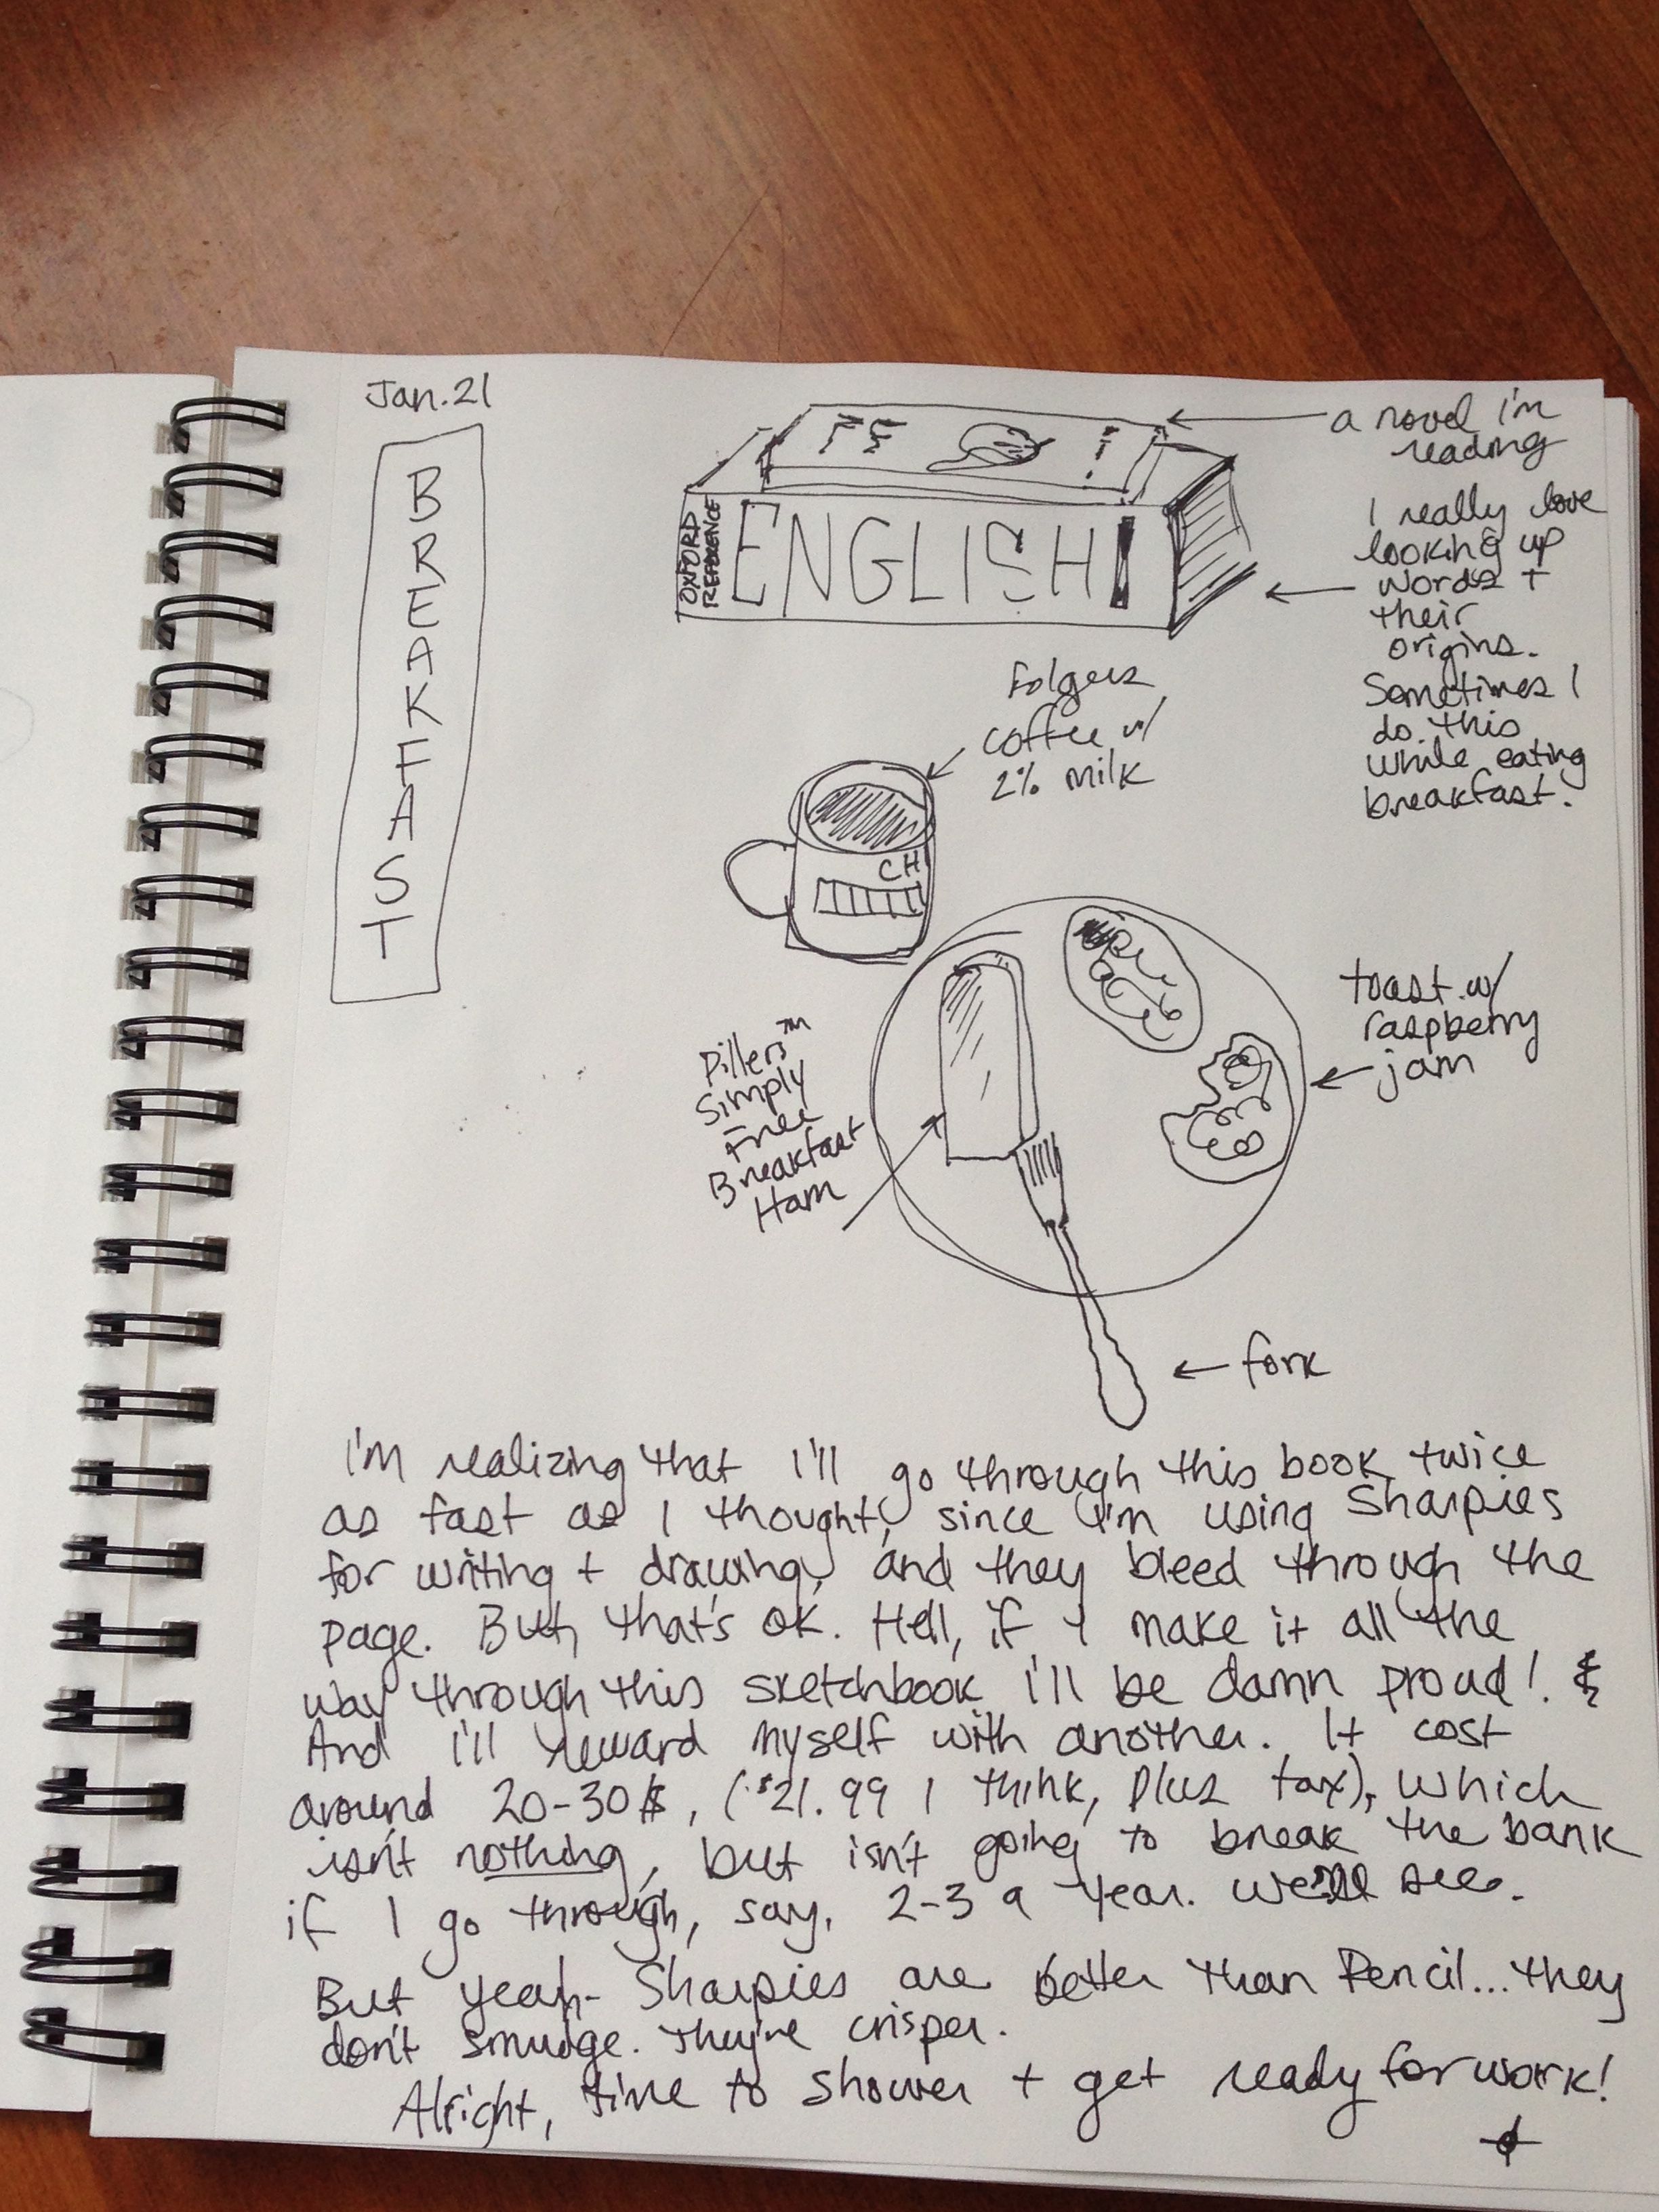 Jan. 21
BREAKFAST
a novel i'm
reading
OXFORD
REFERENCE
ENGLISH
I really love
looking up
words +
their
origins.
Sometimes I
do this
while eating
breakfast.
Folgers
coffee w/
2% milk
CH
toast w/
raspberry
jam
Pillers™
Simply
Free
Breakfast
Ham
fork
I'm realizing that I'll go through this book twice
as fast as I thought, since I'm using Sharpies
for writing + drawing, and they bleed through the
page. But, that's ok. Hell, if I make it all the
way through this sketchbook I'll be damn proud!
And I'll reward myself with another. It cost
around 20-30$, ($21.99 I think, plus tax), which
isn't nothing, but isn't going to break the bank
if I go through, say, 2-3 a year. We'll see.
But yeah- Sharpies are better than Pencil... they
don't smudge. They're crisper.
Alright, time to shower + get ready for work!